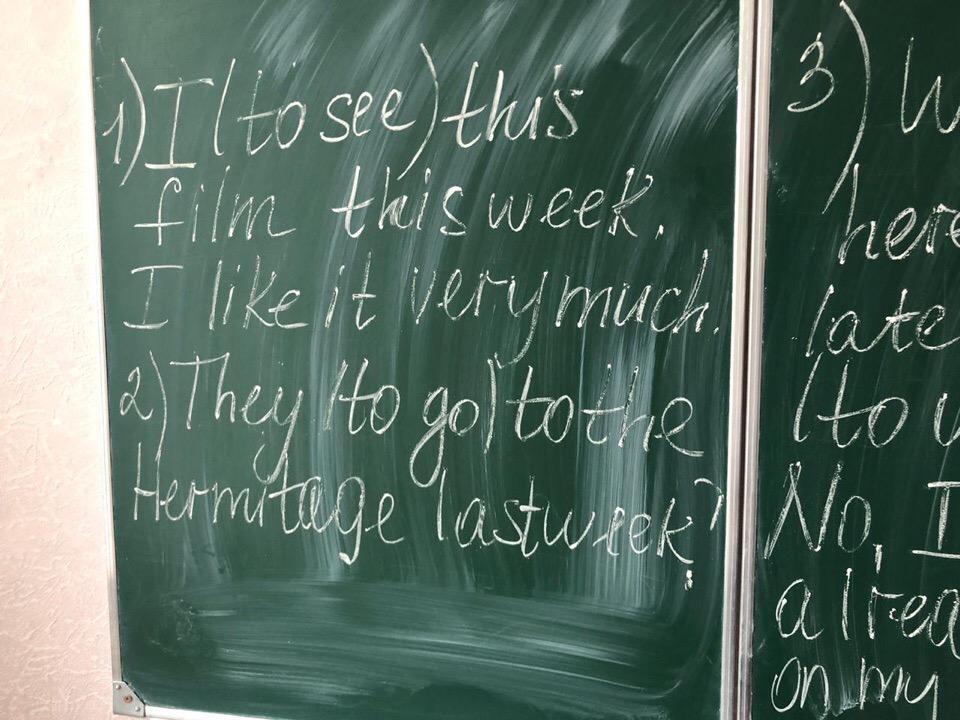 1) I (to see) this
film this week.
I like it very much.
2) They (to go) to the
Hermitage last week?
3)
here
late
(to
No, I
on my